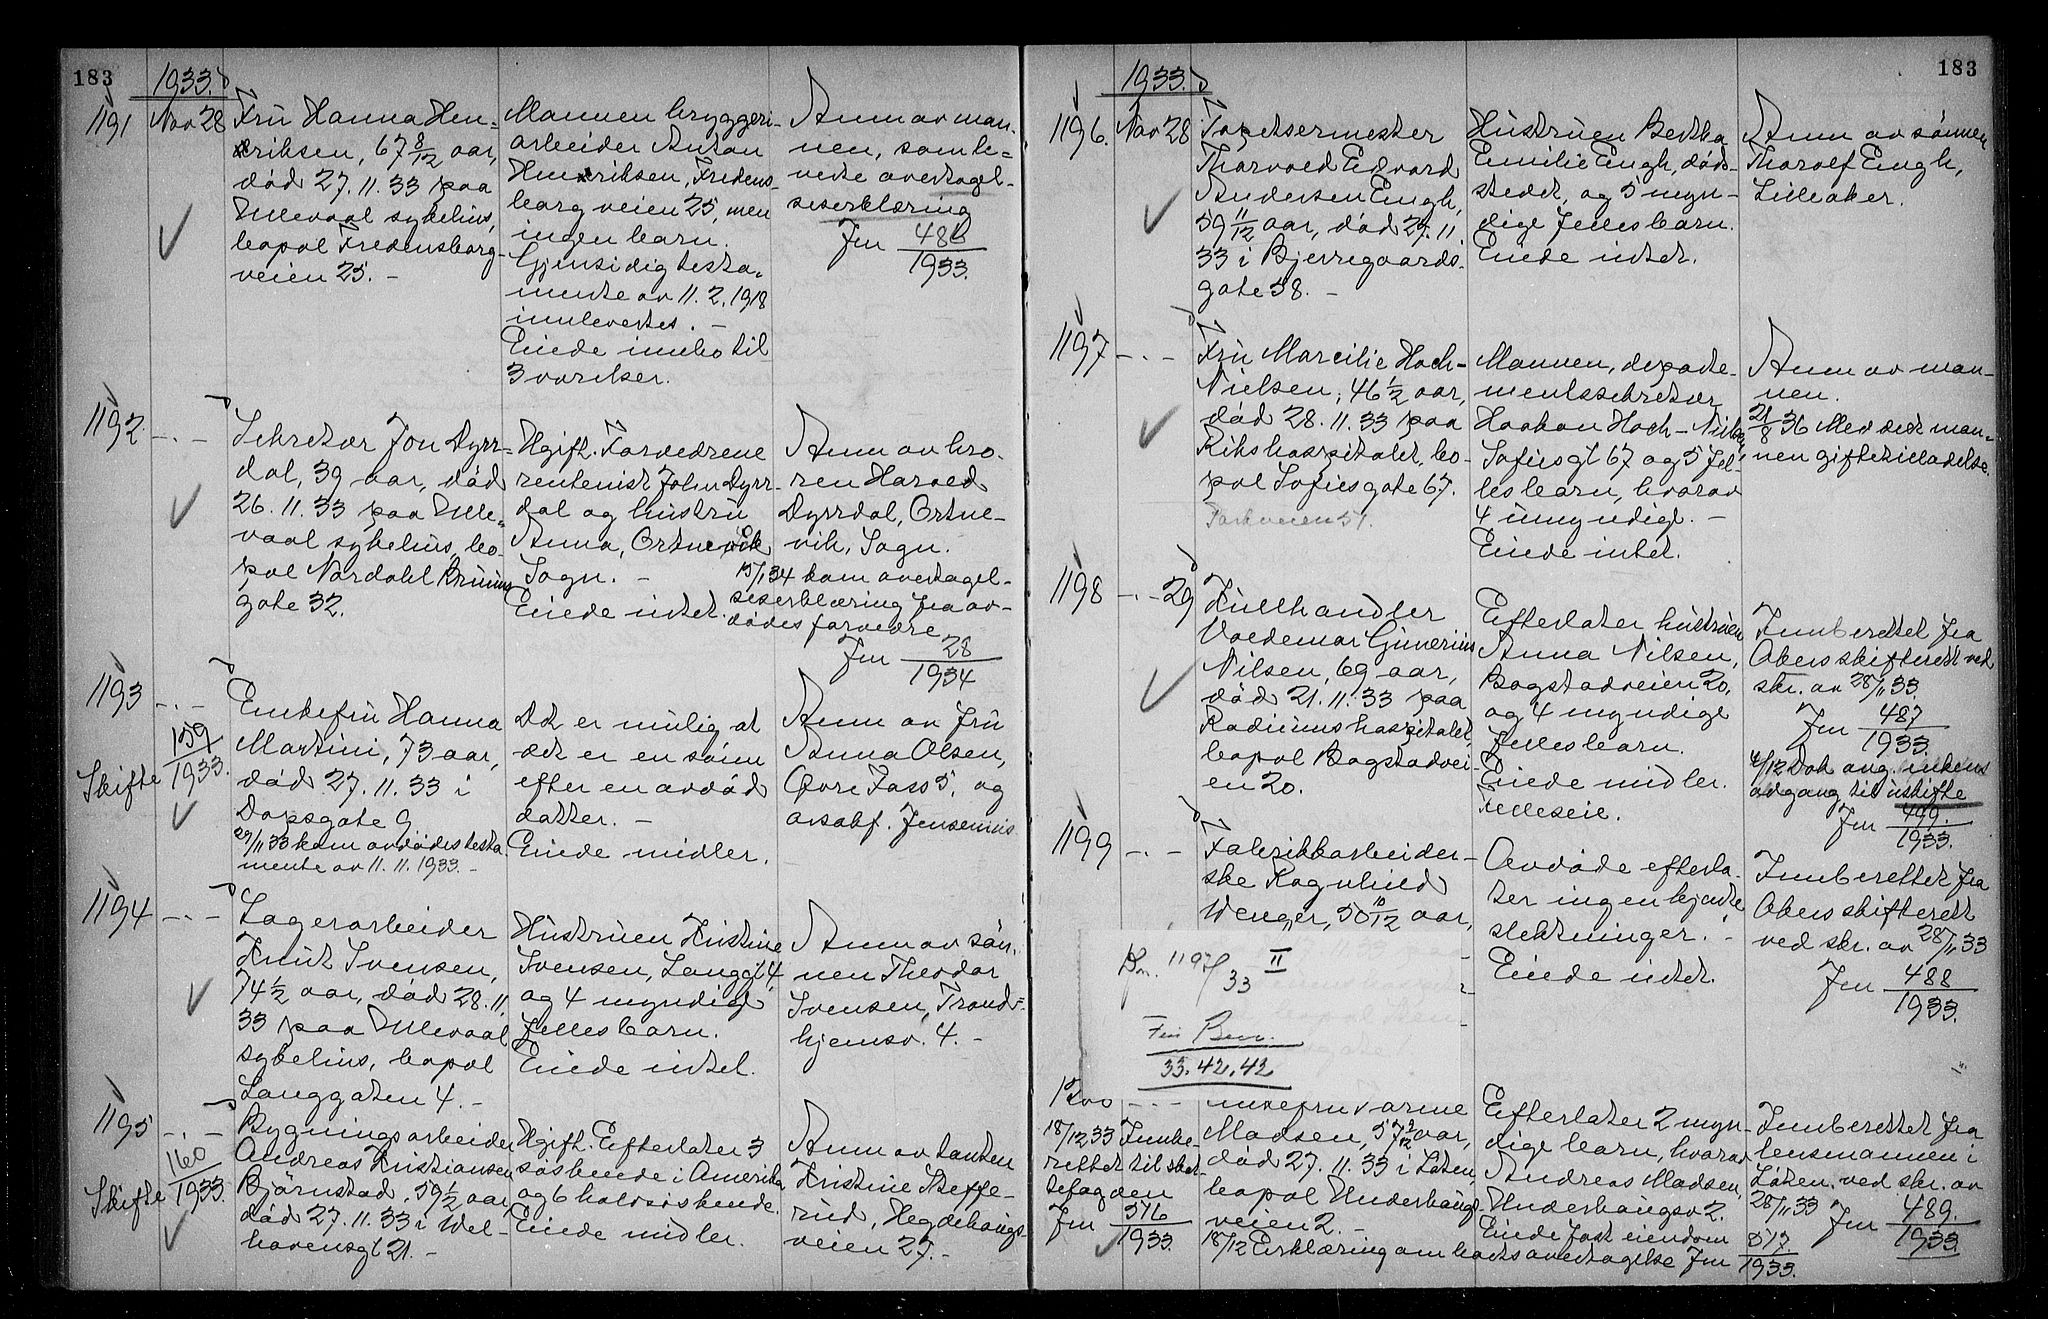 183
1933.
1191 Nov 28
Fru Hanna Hen=
driksen, 67 8/12 aar,
død 27.11.33 paa
Ullevaal sykehus,
bopæl Fredensborg-
veien 25. -
Mannen bryggeri-
arbeider Anton
Hendriksen, Fredens-
borgveien 25, men
ingen barn.
Gjensidig testa-
mente av 11.2.1918
innlevertes. -
Eiede innbo til
3 værelser.
Anm av man-
nen, som le=
verte overtagel-
seserklæring
Jnr 486/1933.
1192 -.-
Sekretær Jon Dyrr=
dal, 39 aar, død
26.11.33 paa Ulle-
vaal sykehus, bo-
pæl Nordahl Bruuns
gate 32.
Ugift. Forældrene
rentenist John Dyrr-
dal og hustru
Anna, Ortnevik
Sogn. -
Eiede intet.
Anm av bro-
ren Harald
Dyrrdal, Ortne-
vik, Sogn.
15/1 34 kom overtagel-
seserklæring fra av-
dødes forældre
Jnr 28/1934
1193 -.-
159/1933.
Skifte
Enkefru Hanna
Martini, 73 aar,
død 27.11.33 i
Dopsgate 9
29/11 33 kom avdødes testa-
mente av 11.11.1933. -
Det er mulig at
det er en sønn
efter en avdød
datter. -
Eiede midler.
Anm av fru
Anna Olsen,
Øvre Foss 5, og
o.r.sakf. Jensenius
1194 -.-
Lagerarbeider
Knut Svensen,
74 1/2 aar, død 28.11.
33 paa Ullevaal
sykehus, bopæl
Langgaten 4. -
Hustruen Kristine
Svensen, Langgt 4,
og 4 myndige
fellesbarn.
Eiede intet.
Anm av søn-
nen Theodor
Svensen, Trond=
hjemsv. 4. -
1195 -.-
160/1933.
Skifte
Bygningsarbeider
Andreas Kristiansen
Bjørnstad, 59 1/2 aar,
død 27.11.33 i Wel-
havensgt 21. -
Ugift. Efterlater 3
søskende i Amerika
og 6 halvsøskende.
Eiede midler.
Anm av tanten
Kristine Steffe-
rud, Hegdehaugs-
veien 27. -
183
1933.
1196. Nov 28
Tapetsermester
Thorvald Edvard
Andersen Engh,
59 11/12 aar, død 27.11.
33 i Bjerregaards-
gate 58. -
Hustruen Bertha
Emilie Engh, døds-
stedet, og 5 myn-
dige fellesbarn.
Eiede intet.
Anm av sønnen
Tharolf Engh,
Lilleaker.
1197 -.-
Fru Marcilie Hoch-
Nielsen, 46 1/2 aar,
død 28.11.33 paa
Rikshospitalet, bo-
pæl Sofiesgate 67.
Parkveien 51.
Mannen, departe-
mentssekretær
Haakon Hoch-Nielsen,
Sofiesgt 67 og 5 fel-
lesbarn, hvorav
4 umyndige. -
Eiede intet.
Anm av man-
nen.
21/8 36 Meddelt man-
nen giftetilladelse.
1198 -.- 29
Kullhandler
Valdemar Gunerius
Nilsen, 69 aar,
død 21.11.33 paa
Radiumshospitalet,
bopæl Bogstadvei-
en 20.
Efterlater hustruen
Anna Nilsen,
Bogstadveien 20,
og 4 myndige
fellesbarn.
Eiede midler.
Felleseie.
Innberettet fra
Akers skifterett ved
skr. av 28/11 33.
Jnr 487/1933.
4/12 Dok ang. enkens
adgang til uskifte
Jnr 499./1933.
1199 -.-
Fabrikkarbeider-
ske Ragnhild
Wenger, 50 10/12 aar,
Avdøde efterla-
ter ingen kjente
slektninger. -
Eiede intet.
Innberettet fra
Akers skifterett
ved skr. av 28/11 33
Jnr 488/1933.
Dnr. 1197/33 II
Fru Berr.
33.42.42
1200 -.-
18/12 33 Innbe-
rettet til skat-
tefogden
Jnr 516/1933.
Madsen, 57 2/12 aar,
død 27.11.33 i Løten,
bopæl Underhaugs-
veien 2. -
18/12 Erklæring om boets overtagelse Jnr 517./1933.
Efterlater 2 myn-
dige barn, hvorav
Andreas Madsen,
Underhaugsv 2.
Eiede fast eiendom
Innberettet fra
lensmannen i
Løten ved skr. av
28/11 33 Jnr 489./1933.